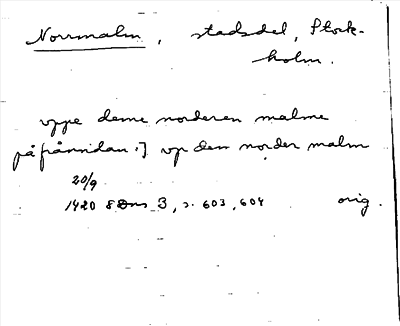 Norrmalm, stadsdel, Stock-
holm.
uppe deme norderen malme
på frånsidan :] up dem norder malm
20/9
1420 SDns 3, s. 603, 604 orig.